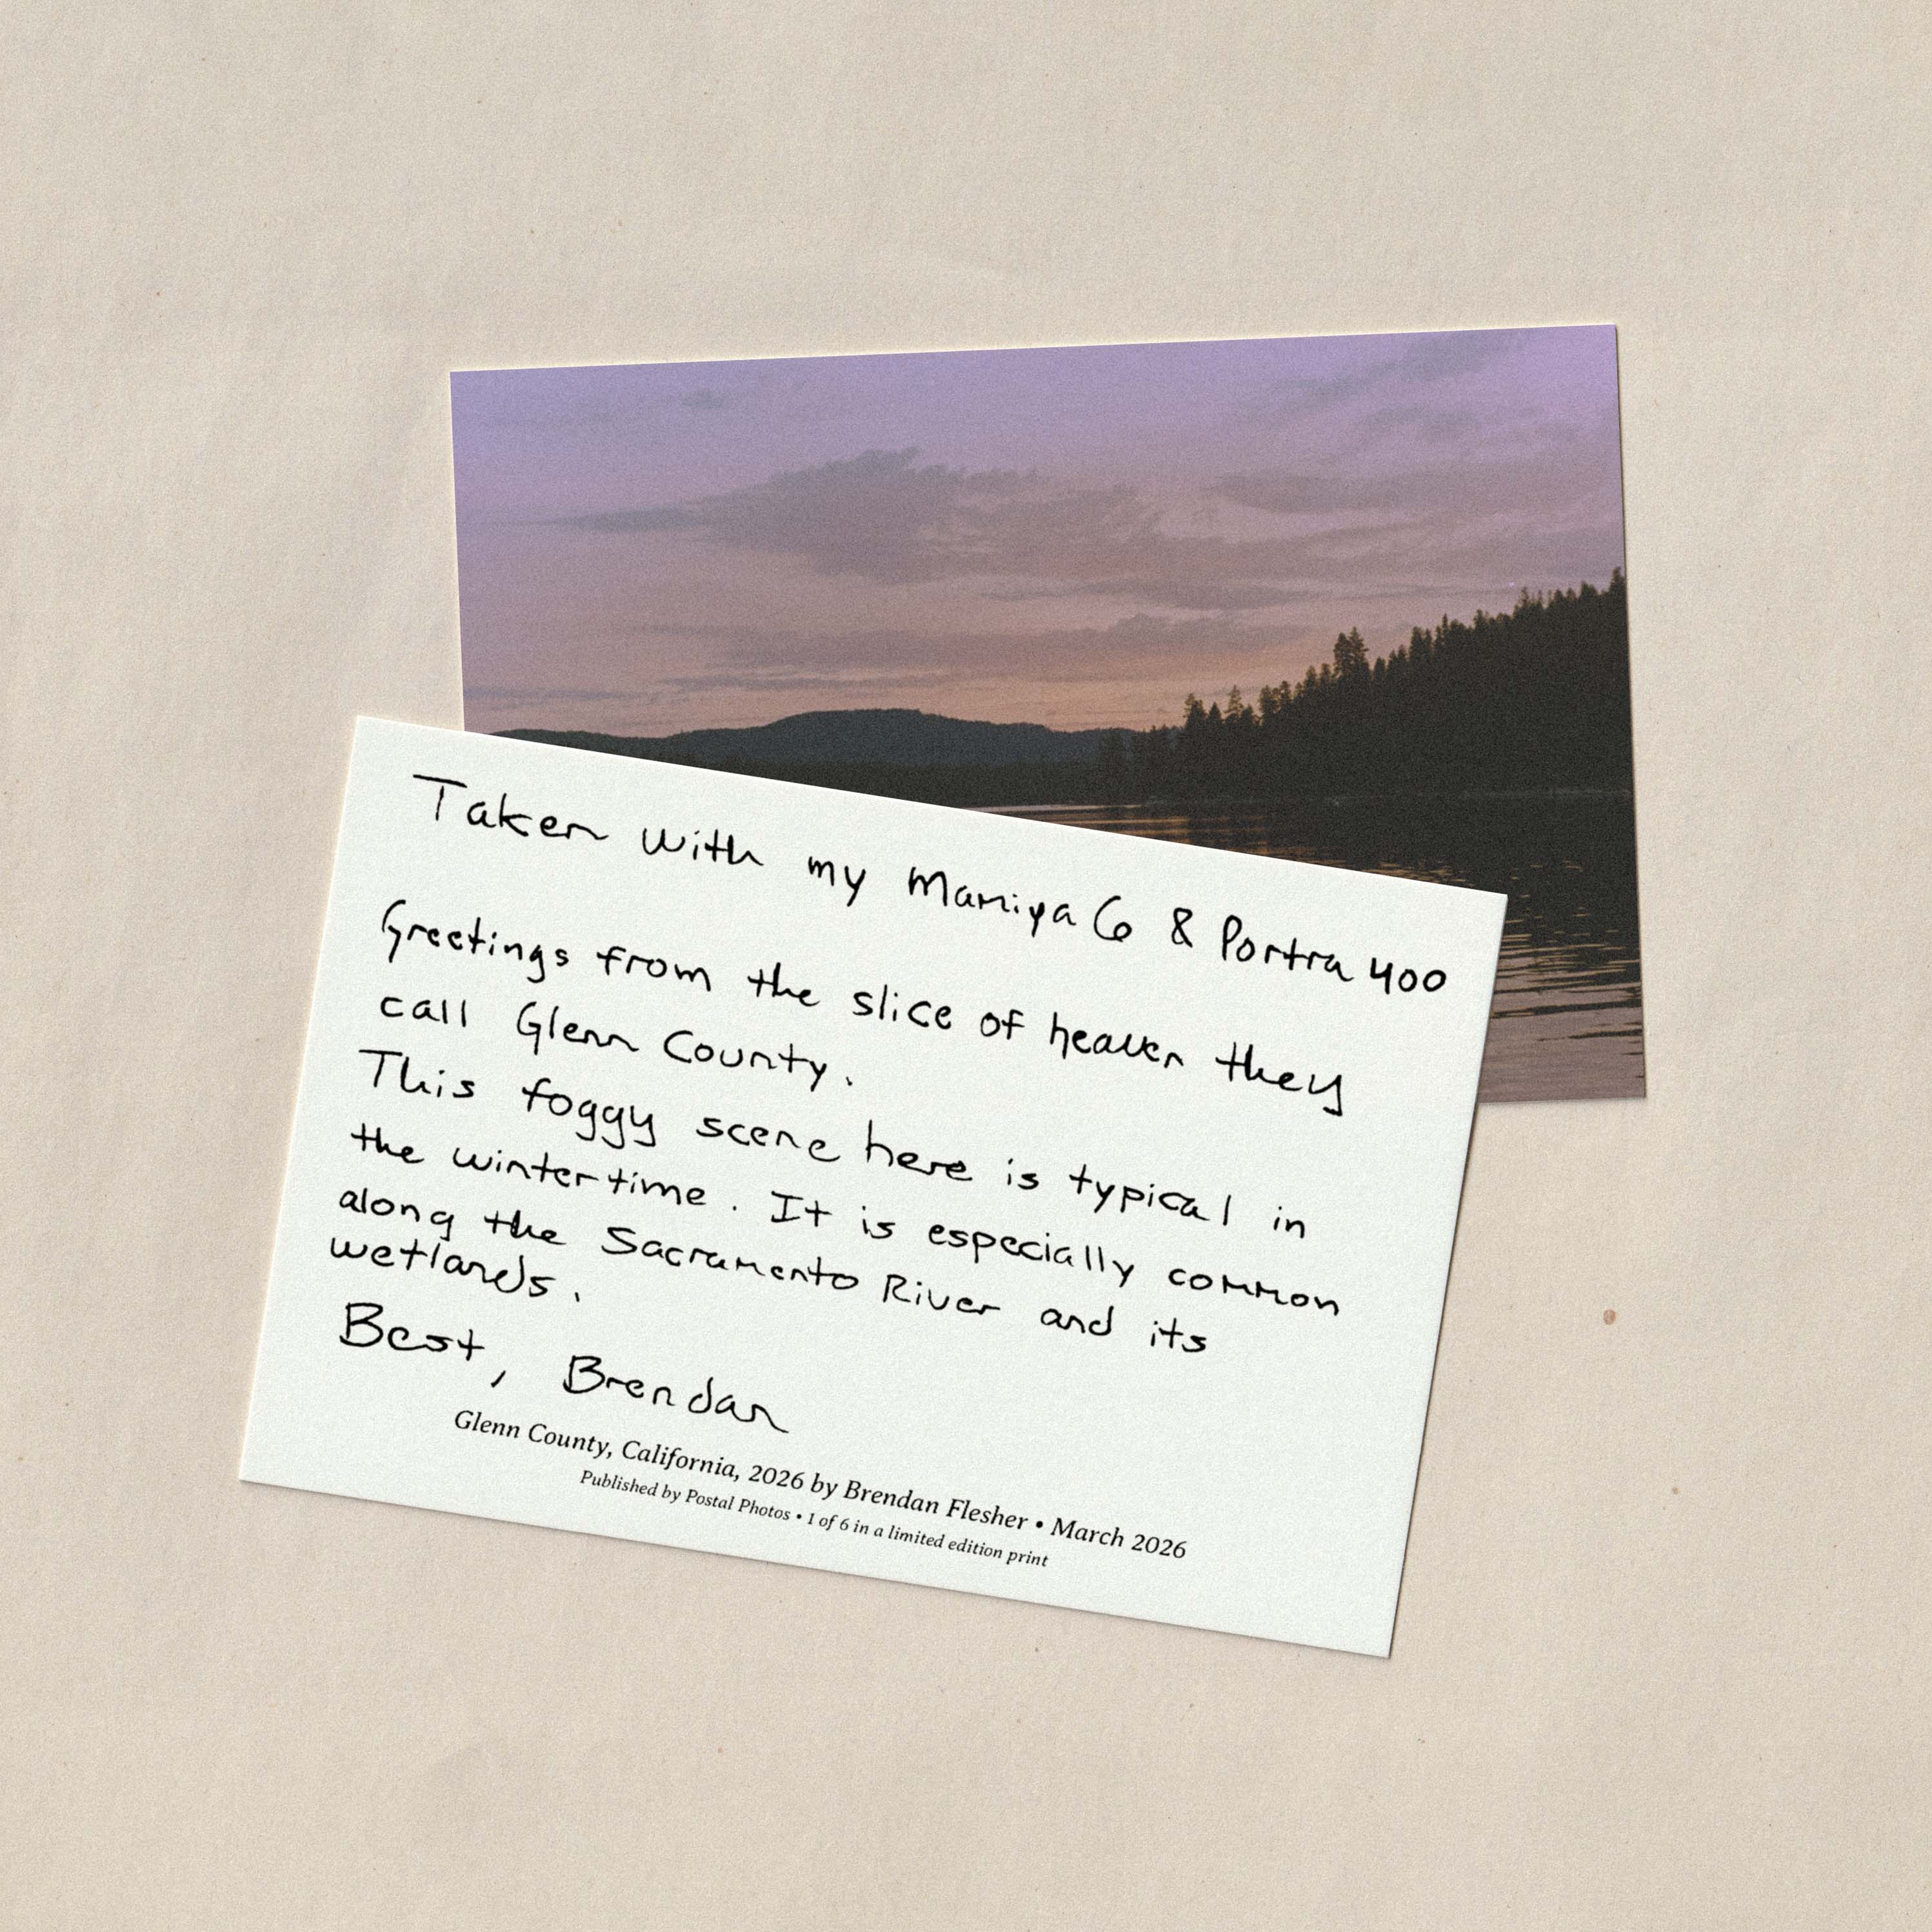 Taken with my Mamiya 6 & Portra 400
Greetings from the slice of heaven they
call Glenn County.
This foggy scene here is typical in
the wintertime. It is especially common
along the Sacramento River and its
wetlands.
Best, Brendan
Glenn County, California, 2026 by Brendan Flesher • March 2026
Published by Postal Photos • 1 of 6 in a limited edition print